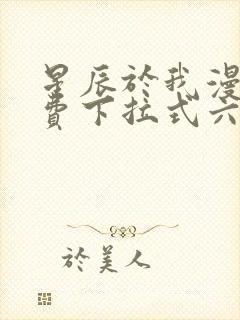 星辰於我漫
費下拉式六
於美人